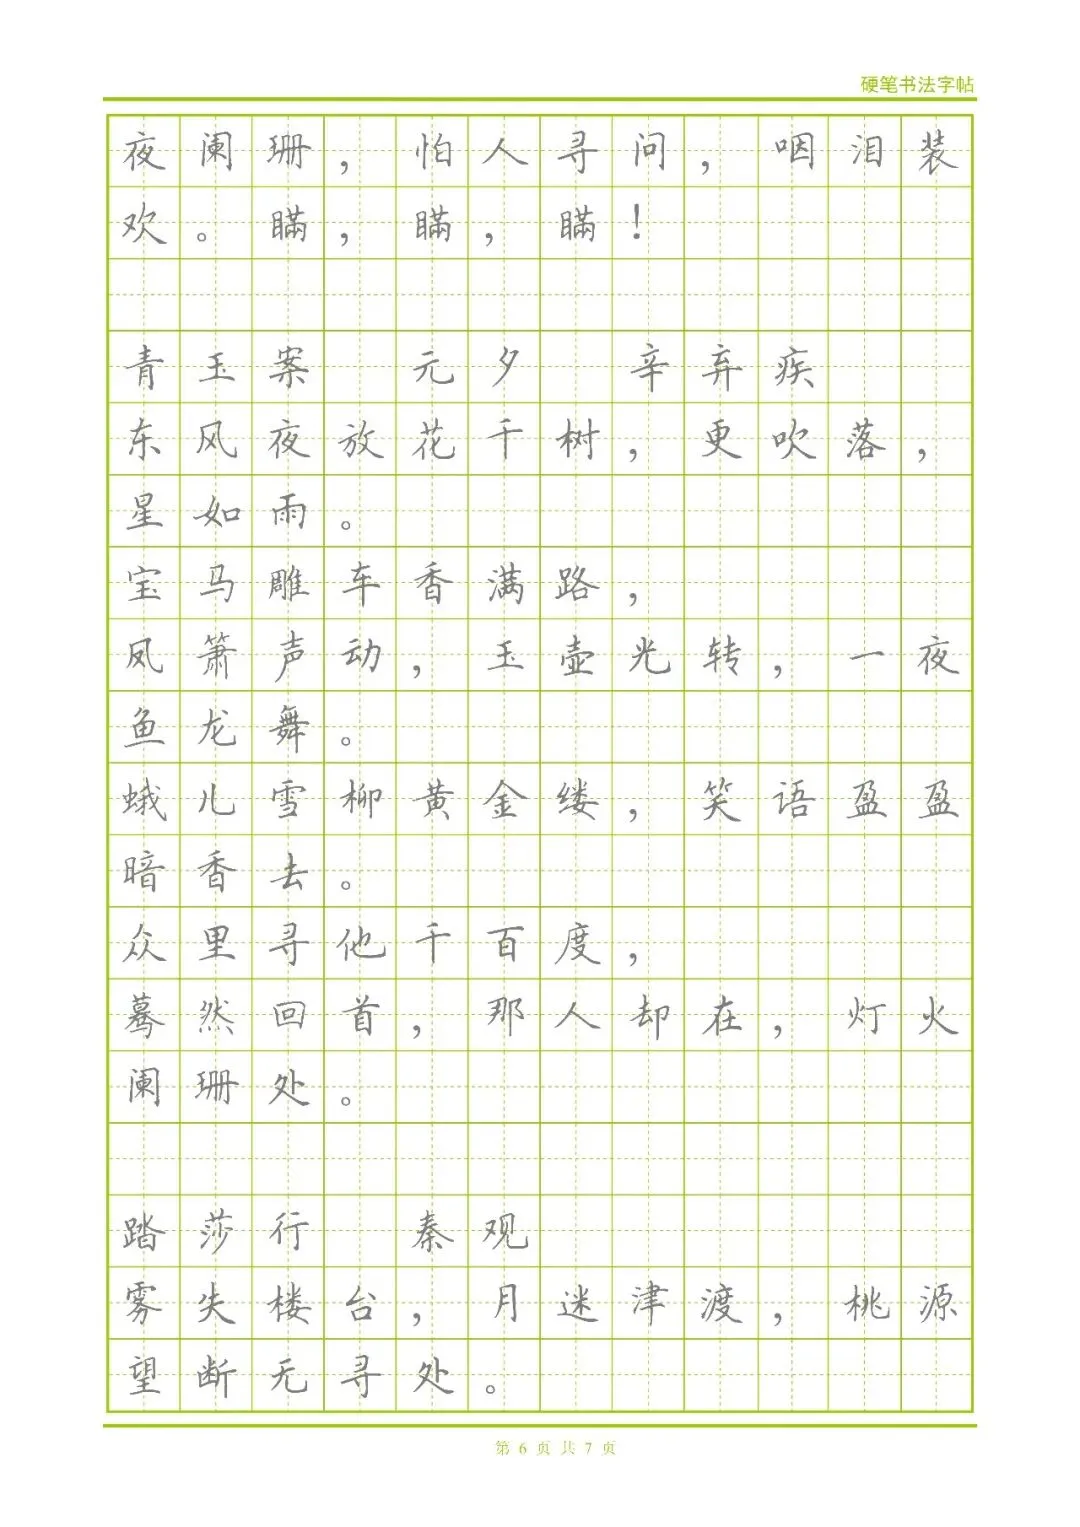 硬笔书法字帖
夜阑珊，怕人寻问，咽泪装
欢。瞒，瞒，瞒！
青玉案 元夕 辛弃疾
东风夜放花千树，更吹落，
星如雨。
宝马雕车香满路，
凤箫声动，玉壶光转，一夜
鱼龙舞。
蛾儿雪柳黄金缕，笑语盈盈
暗香去。
众里寻他千百度，
蓦然回首，那人却在，灯火
阑珊处。
踏莎行 秦观
雾失楼台，月迷津渡，桃源
望断无寻处。
第 6 页 共 7 页